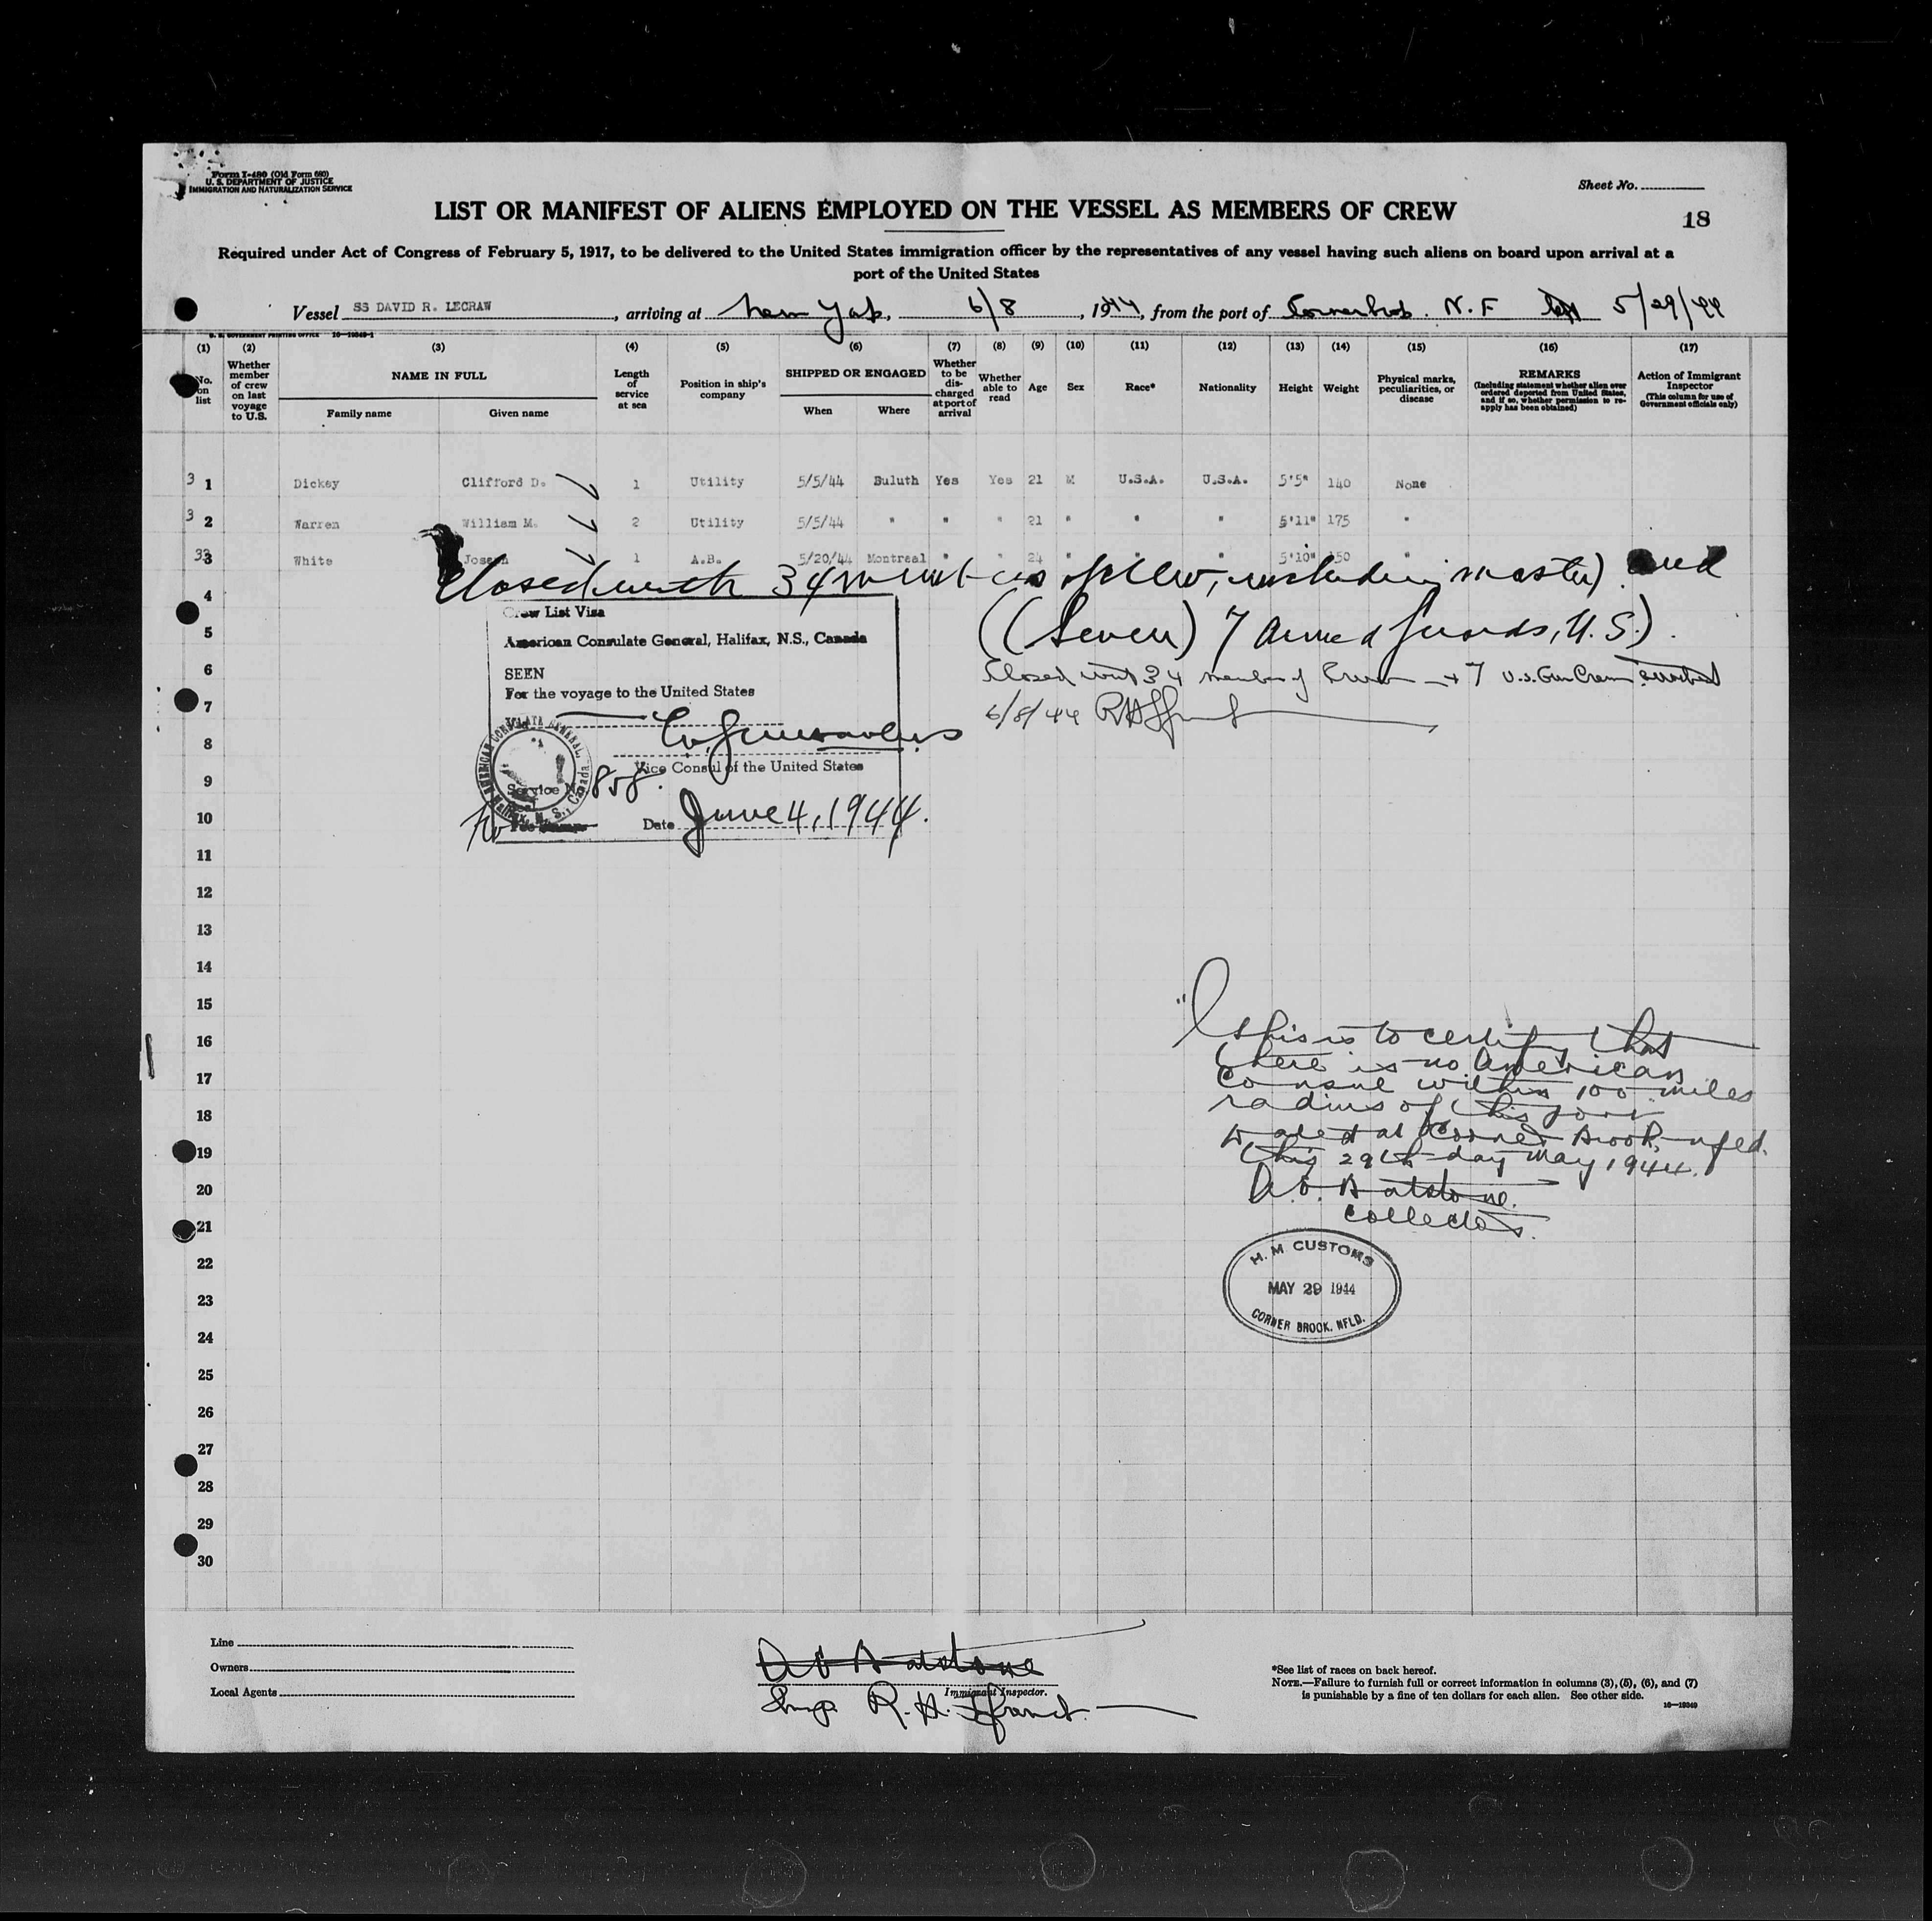 Form I-480 (Old Form 680)
U. S. DEPARTMENT OF JUSTICE
IMMIGRATION AND NATURALIZATION SERVICE
Sheet No.
18
LIST OR MANIFEST OF ALIENS EMPLOYED ON THE VESSEL AS MEMBERS OF CREW
Required under Act of Congress of February 5, 1917, to be delivered to the United States immigration officer by the representatives of any vessel having such aliens on board upon arrival at a
port of the United States
Vessel SS DAVID R. LECRAW, arriving at New York, 6/8, 1944, from the port of N. F 5/29/44
U. S. GOVERNMENT PRINTING OFFICE 16-19349-1
(1) (2) (3) (4) (5) (6) (7) (8) (9) (10) (11) (12) (13) (14) (15) (16) (17)
No. on list
Whether member of crew on last voyage to U.S.
NAME IN FULL
Family name Given name
Length of service at sea
Position in ship's company
SHIPPED OR ENGAGED
When Where
Whether to be dis-charged at port of arrival
Whether able to read
Age
Sex
Race*
Nationality
Height
Weight
Physical marks, peculiarities, or disease
REMARKS
(Including statement whether alien ever ordered deported from United States, and if so, whether permission to re-apply has been obtained)
Action of Immigrant Inspector
(This column for use of Government officials only)
3 1 Dickey Clifford D. 1 Utility 5/5/44 Duluth Yes Yes 21 M U.S.A. U.S.A. 5'5" 140 None
3 2 Warren William M. 2 Utility 5/5/44 " " " 21 " " " 5'11" 175 "
3 3 White Joseph 1 A.B. 5/20/44 Montreal " " 24 " " " 5'10" 150 "
Closed with 34 members of crew, including master) and
((Seven) 7 Armed Guards, U. S.)
4
Crew List Visa
5
American Consulate General, Halifax, N.S., Canada
6
SEEN
Closed with 34 member of Crew + 7 U.S. Gun Crew
For the voyage to the United States
7
6/8/44
8
Vice Consul of the United States
9
Service No. 858.
AMERICAN CONSULATE GENERAL, Halifax, N. S., Canada
No Fee Stamp
10
Date June 4, 1944.
11
12
13
14
15
16
17
18
19
20
21
22
23
24
25
26
27
28
29
30
"This is to certify that
there is no American
Consul within 100 miles
radius of this port
Dated at Corner Brook, nfld.
this 29th day May 1944.
Batstone.
Collector.
H. M. CUSTOMS
MAY 29 1944
CORNER BROOK, NFLD.
Line
Owners
Local Agents
Batstone
Immigrant Inspector.
R. H.
*See list of races on back hereof.
NOTE.—Failure to furnish full or correct information in columns (3), (5), (6), and (7)
is punishable by a fine of ten dollars for each alien. See other side.
16—19349